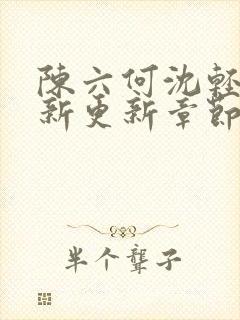 陳六何沈輕
新更新章節
半个聾子